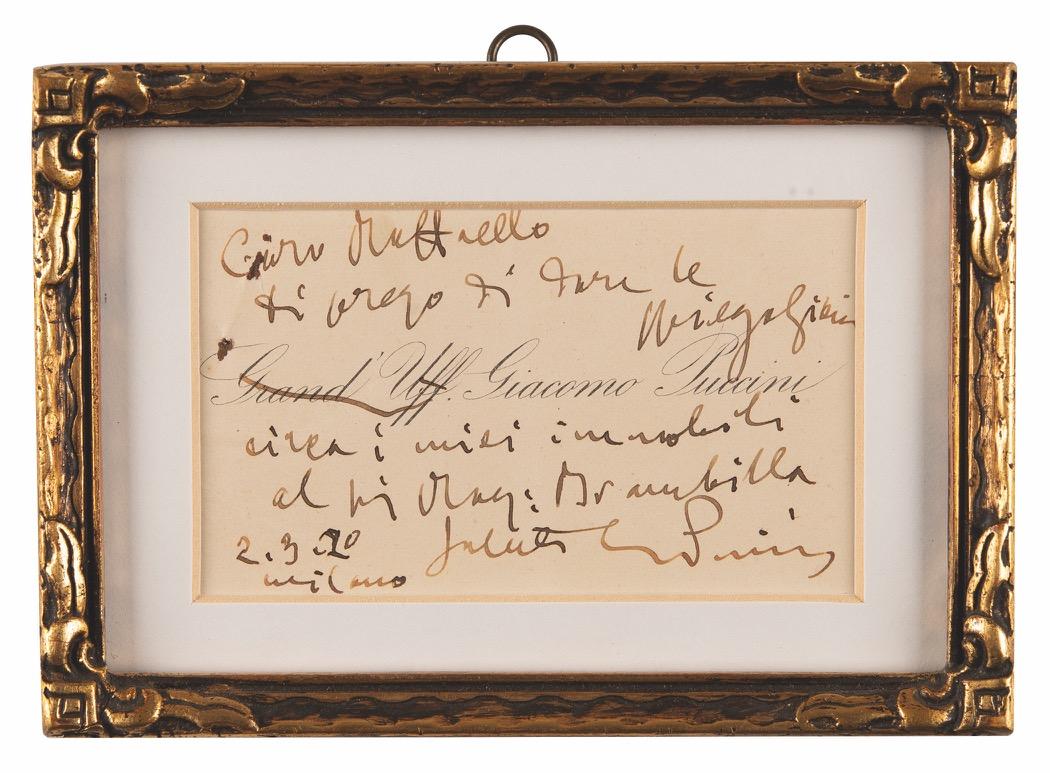 Caro Raffaello
ti prego di dare le
spiegazioni
Grand' Uff. Giacomo Puccini
circa i miei immobili
al sig Rag. Brambilla
2.3.20 Saluti GPuccini
Milano